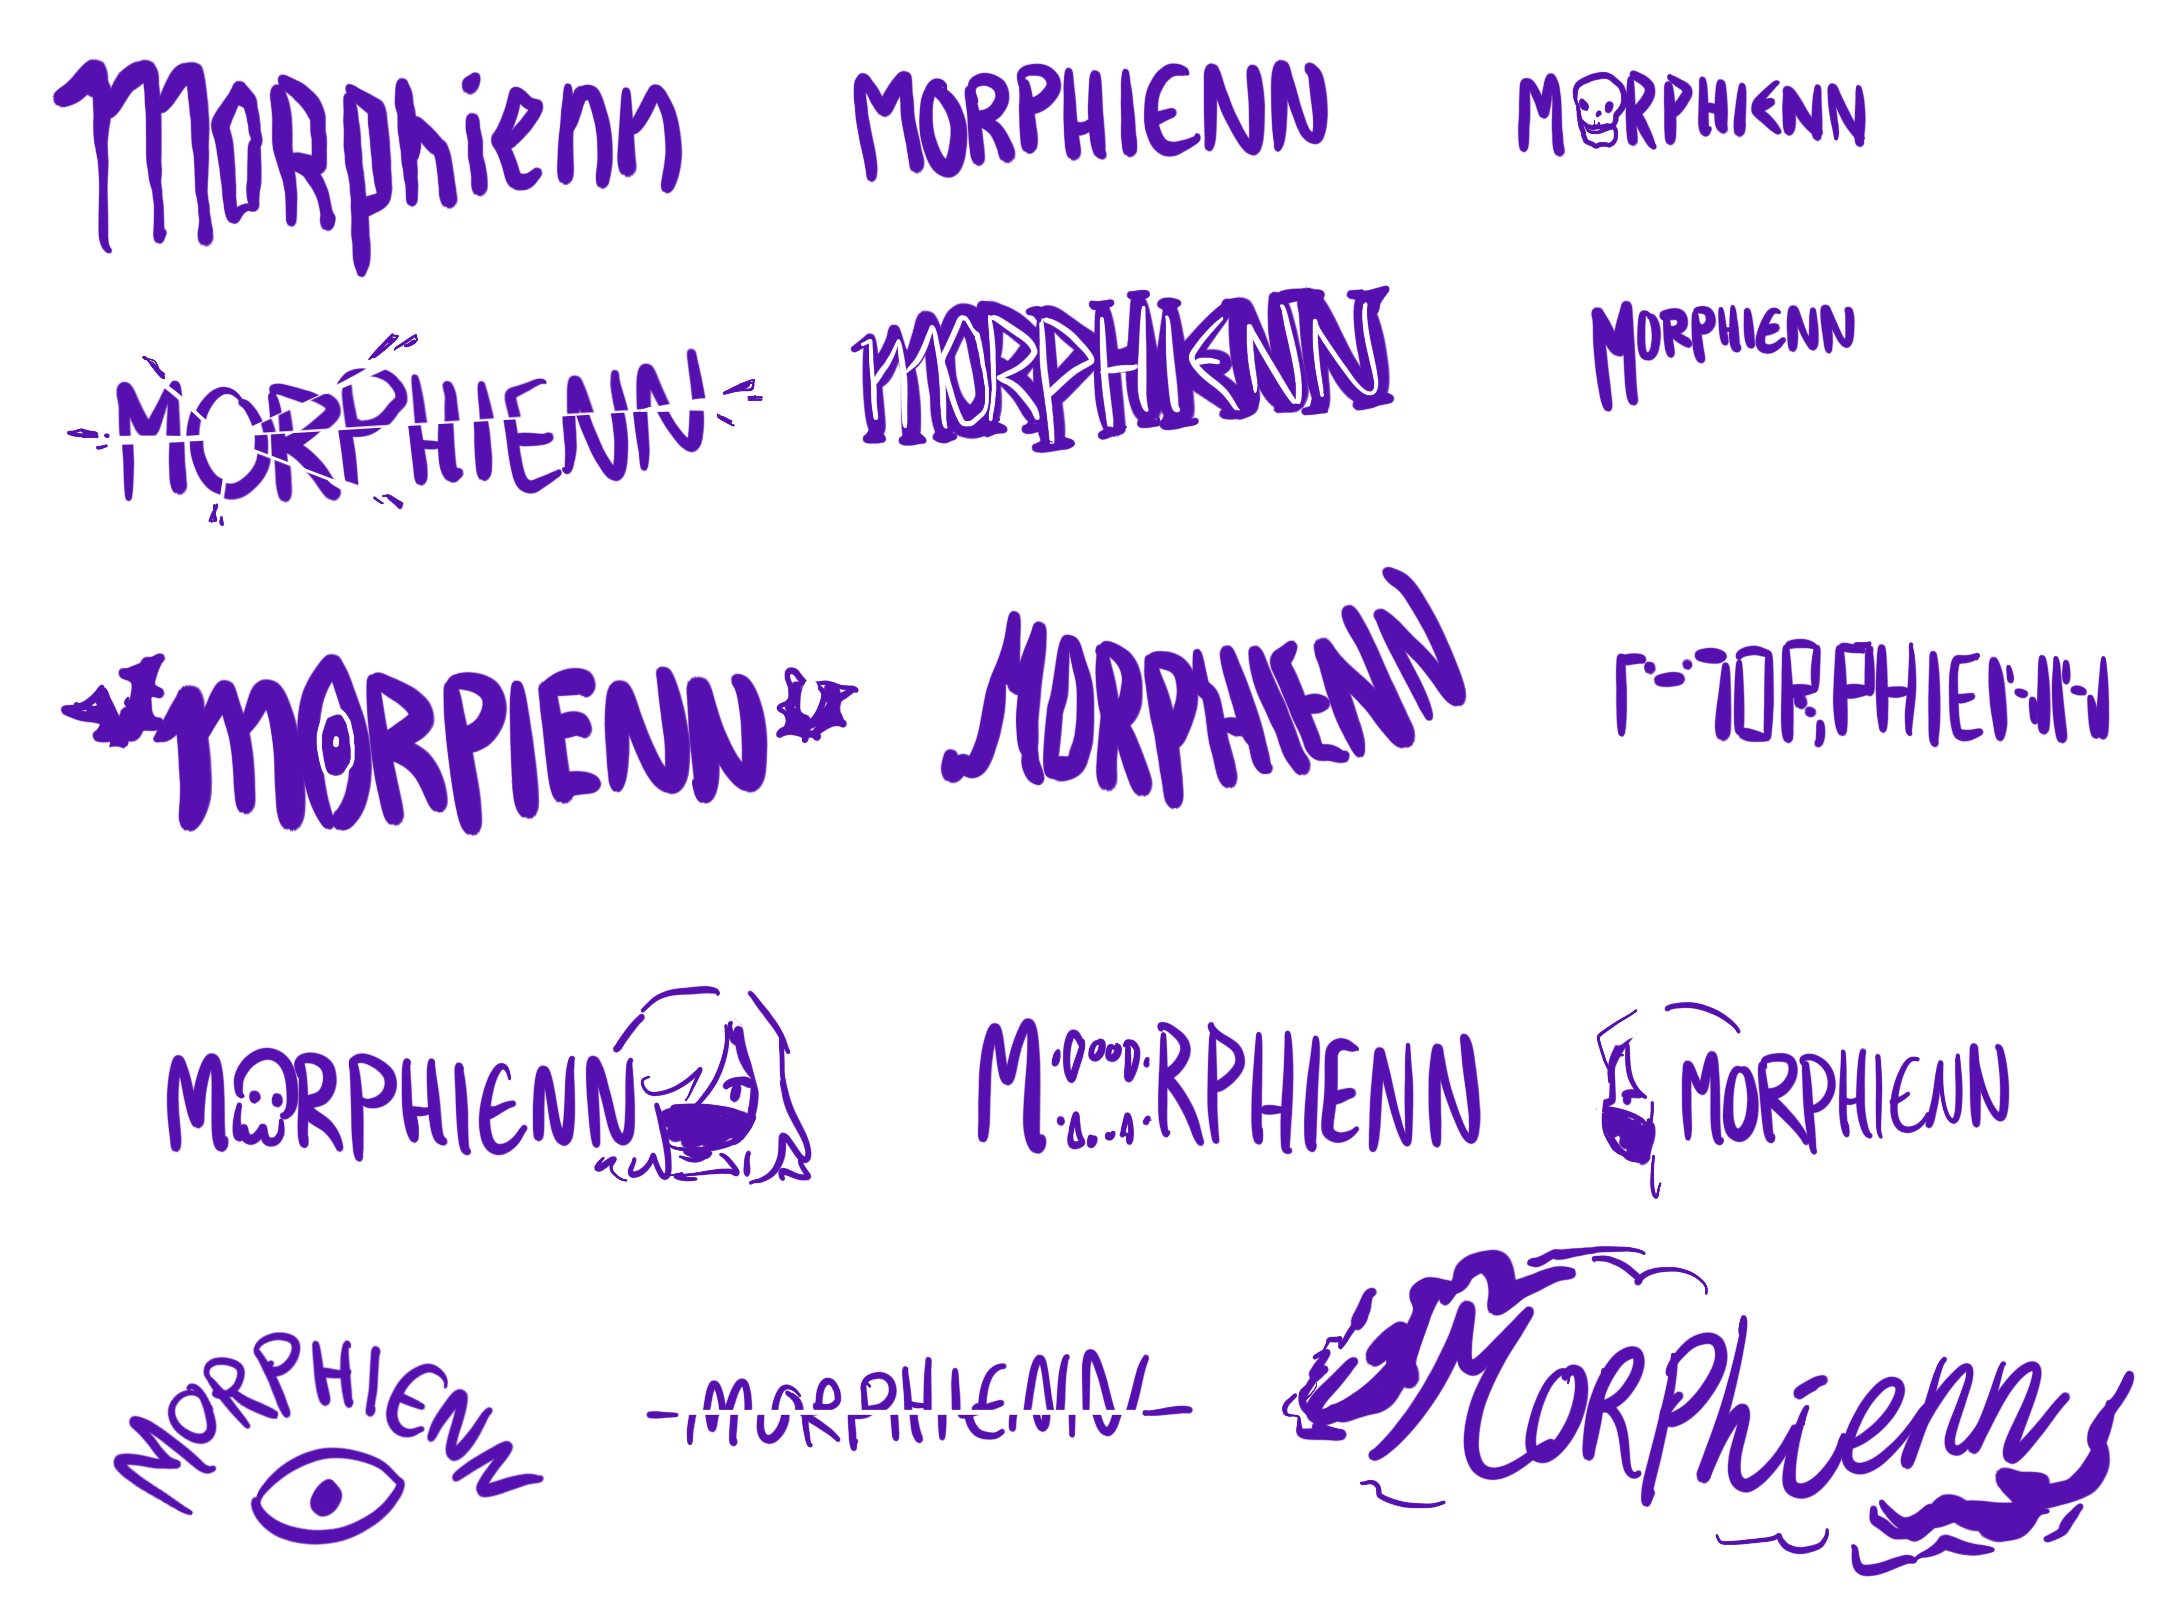 Morphienn
MORPHIENN
MORPHIENN
MORPHIENN
MORPHIENN
MORPHIENN
MORPIENN
MORPHIENN
MORPHIENN
MORPHIENN
MORPHIENN
MORPHIENN
MORPHIENN
MORPHIENN
Morphienn